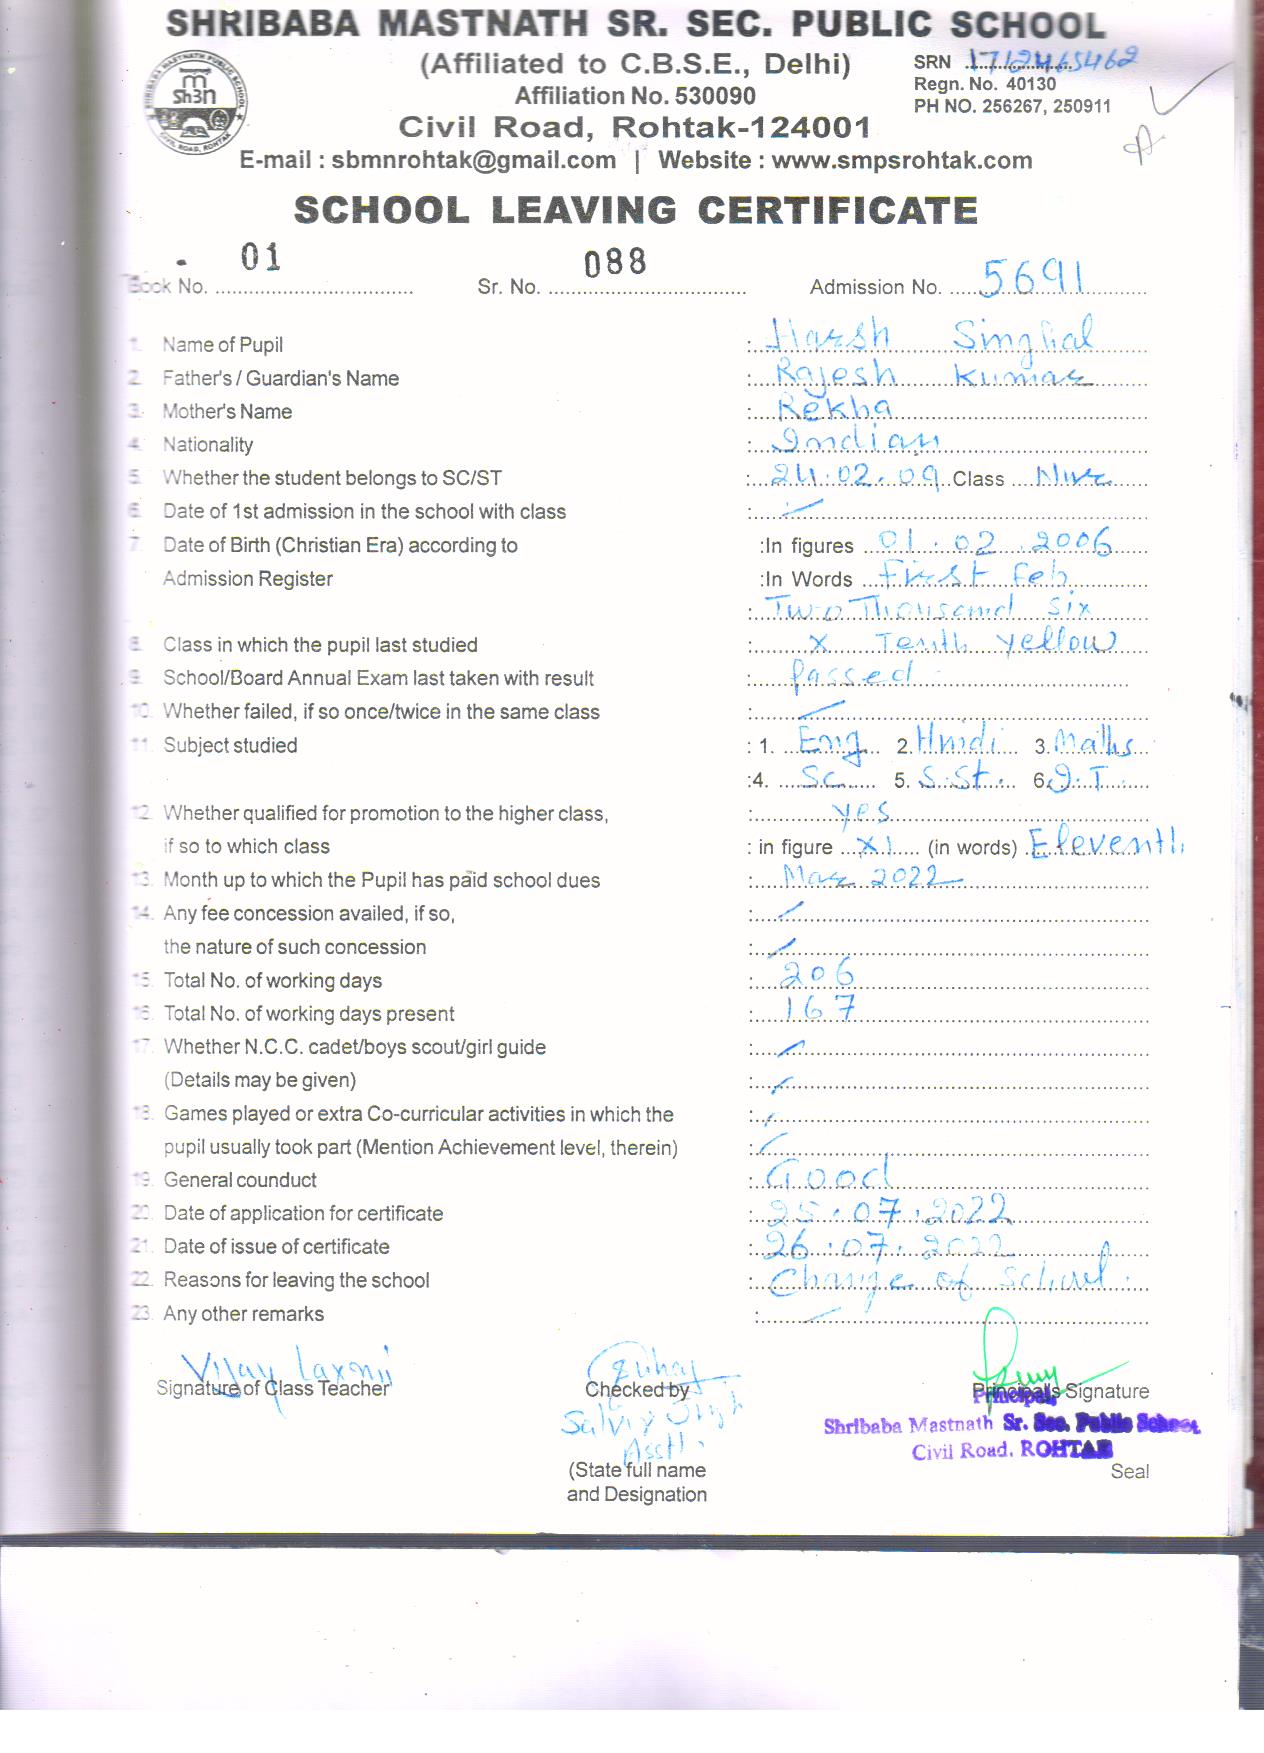 SHRIBABA MASTNATH SR. SEC. PUBLIC SCHOOL
(Affiliated to C.B.S.E., Delhi)
SRN 1712465462
Regn. No. 40130
Affiliation No. 530090
PH NO. 256267, 250911
Civil Road, Rohtak-124001
E-mail : sbmnrohtak@gmail.com | Website : www.smpsrohtak.com
SHRIBABA MASTNATH PUBLIC SCHOOL
CIVIL ROAD, ROHTAK
SCHOOL LEAVING CERTIFICATE
Book No. 01 Sr. No. 088 Admission No. 5691
1. Name of Pupil : Harsh Singhal
2. Father's / Guardian's Name : Rajesh Kumar
3. Mother's Name : Rekha
4. Nationality : Indian
5. Whether the student belongs to SC/ST : 24.02.09 Class Nur
6. Date of 1st admission in the school with class :
7. Date of Birth (Christian Era) according to :In figures 01.02.2006
Admission Register :In Words First Feb
: Two Thousand Six
8. Class in which the pupil last studied : X Tenth Yellow
9. School/Board Annual Exam last taken with result : Passed
10. Whether failed, if so once/twice in the same class :
11. Subject studied : 1. Eng 2. Hindi 3. Maths
:4. Sc. 5. S.St. 6. I.T.
12. Whether qualified for promotion to the higher class, : Yes
if so to which class : in figure XI (in words) Eleventh
13. Month up to which the Pupil has paid school dues : Mar 2022
14. Any fee concession availed, if so, :
the nature of such concession :
15. Total No. of working days : 206
16. Total No. of working days present : 167
17. Whether N.C.C. cadet/boys scout/girl guide :
(Details may be given) :
18. Games played or extra Co-curricular activities in which the :
pupil usually took part (Mention Achievement level, therein) :
19. General counduct : Good
20. Date of application for certificate : 25.07.2022
21. Date of issue of certificate : 26.07.2022
22. Reasons for leaving the school : Change of School.
23. Any other remarks :
Vijay Laxmi
Signature of Class Teacher Checked by Principal's Signature
Principal,
Shribaba Mastnath Sr. Sec. Public School
Asstt.
Civil Road, ROHTAK
(State full name Seal
and Designation